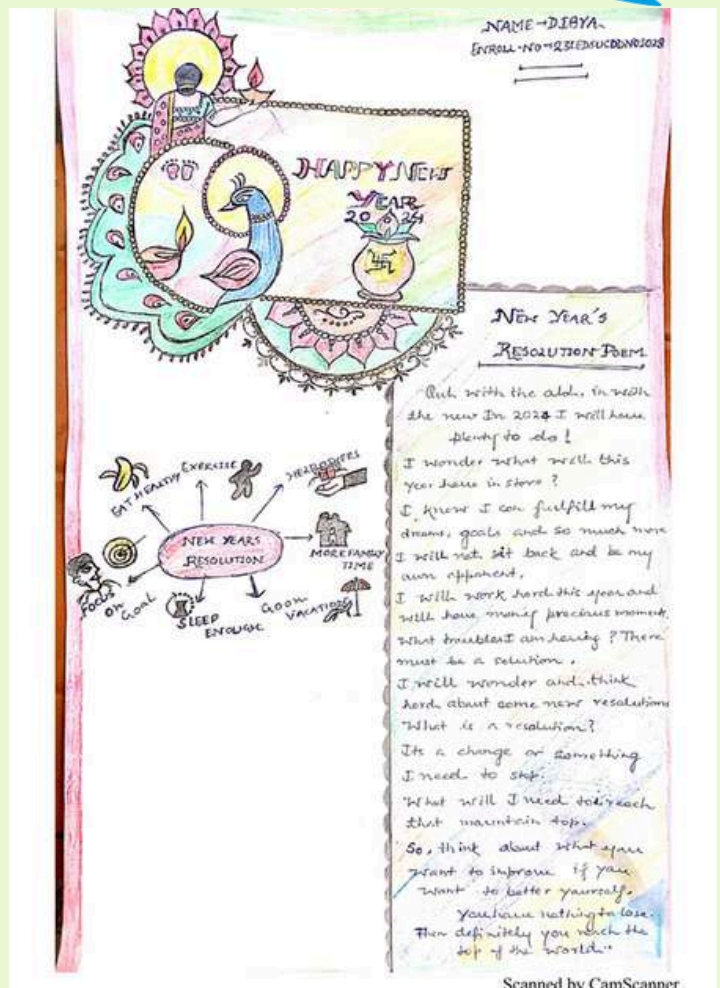 NAME → DIBYA
ENROLL-NO →
HAPPY NEW
YEAR
2024
NEW YEAR'S
RESOLUTION POEM
Out with the old, in with
the new In 2024 I will have
plenty to do!
I wonder what will this
year have in store?
I know I can fulfill my
dreams, goals and so much more
I will not sit back and be my
own opponent.
I will work hard this year and
will have many precious moment.
What troubles I am having? There
must be a solution.
I will wonder and think
hard about some new resolutions
What is a resolution?
Its a change or something
I need to stop.
What will I need to reach
that mountain top.
So, think about what you
want to improve if you
want to better yourself.
You have nothing to lose.
Then definitely you reach the
top of the world."
EAT HEALTHY
EXERCISE
HELP OTHERS
NEW YEARS
RESOLUTION
MORE FAMILY
TIME
FOCUS
ON
GOAL
SLEEP
ENOUGH
GO ON
VACATION
Scanned by CamScanner